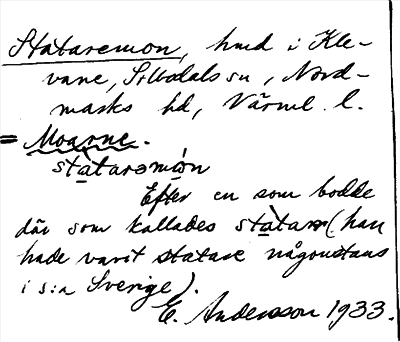 Stataremon, hmd i Kle-
vane, Silbodals sn, Nord-
marks hd, Värml. l.
= Moarne.
stàtarəmón
Efter en som bodde
där som kallades stàtarn (han
hade varit statare någonstans
i s:a Sverige).
E. Andersson 1933.